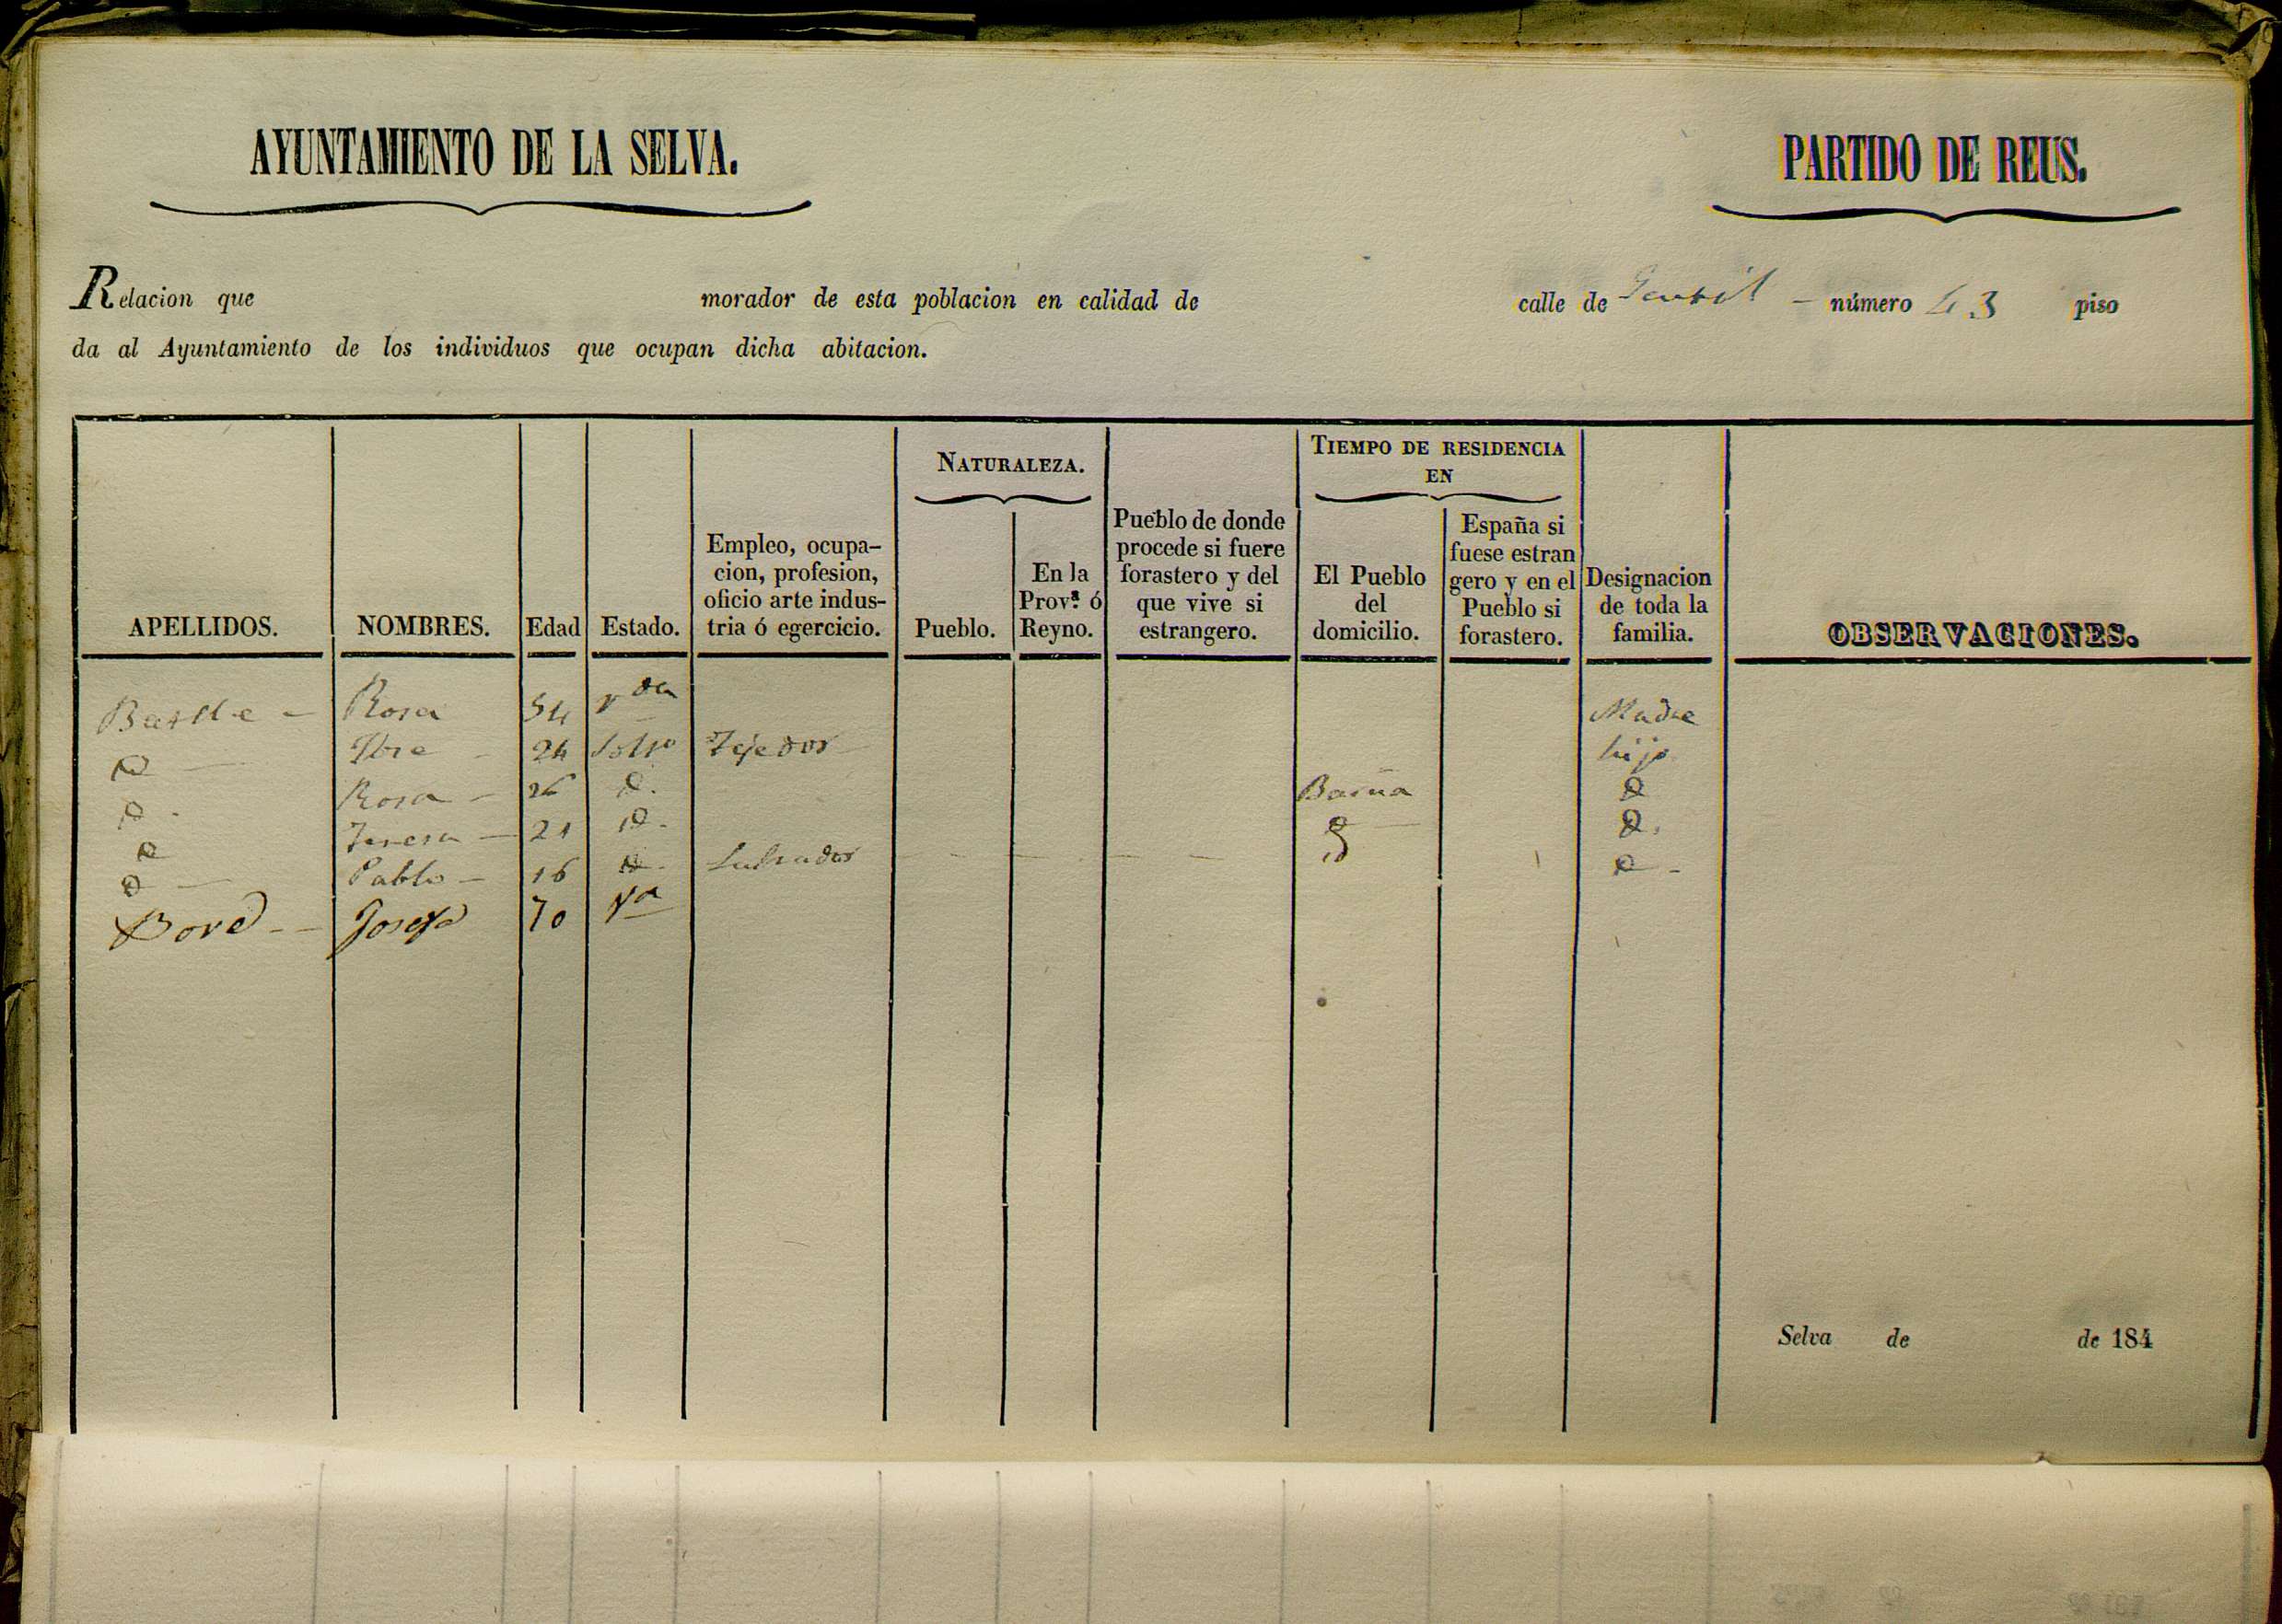 AYUNTAMIENTO DE LA SELVA.
PARTIDO DE REUS.
Relacion que morador de esta poblacion en calidad de calle de número 43 piso
da al Ayuntamiento de los individuos que ocupan dicha abitacion.
APELLIDOS.
NOMBRES.
Edad
Estado.
Empleo, ocupa-
cion, profesion,
oficio arte indus-
tria ó egercicio.
NATURALEZA.
Pueblo.
En la
Prov.ª ó
Reyno.
Pueblo de donde
procede si fuere
forastero y del
que vive si
estrangero.
TIEMPO DE RESIDENCIA
EN
El Pueblo
del
domicilio.
España si
fuese estran
gero y en el
Pueblo si
forastero.
Designacion
de toda la
familia.
OBSERVACIONES.
Rosa 54 Vda Madre
24 Solto Tejedor hijo
Rosa 26 Barna
Teresa 21
Pablo 16 Labrador
Bové Josefa 70 Va
Selva de de 184